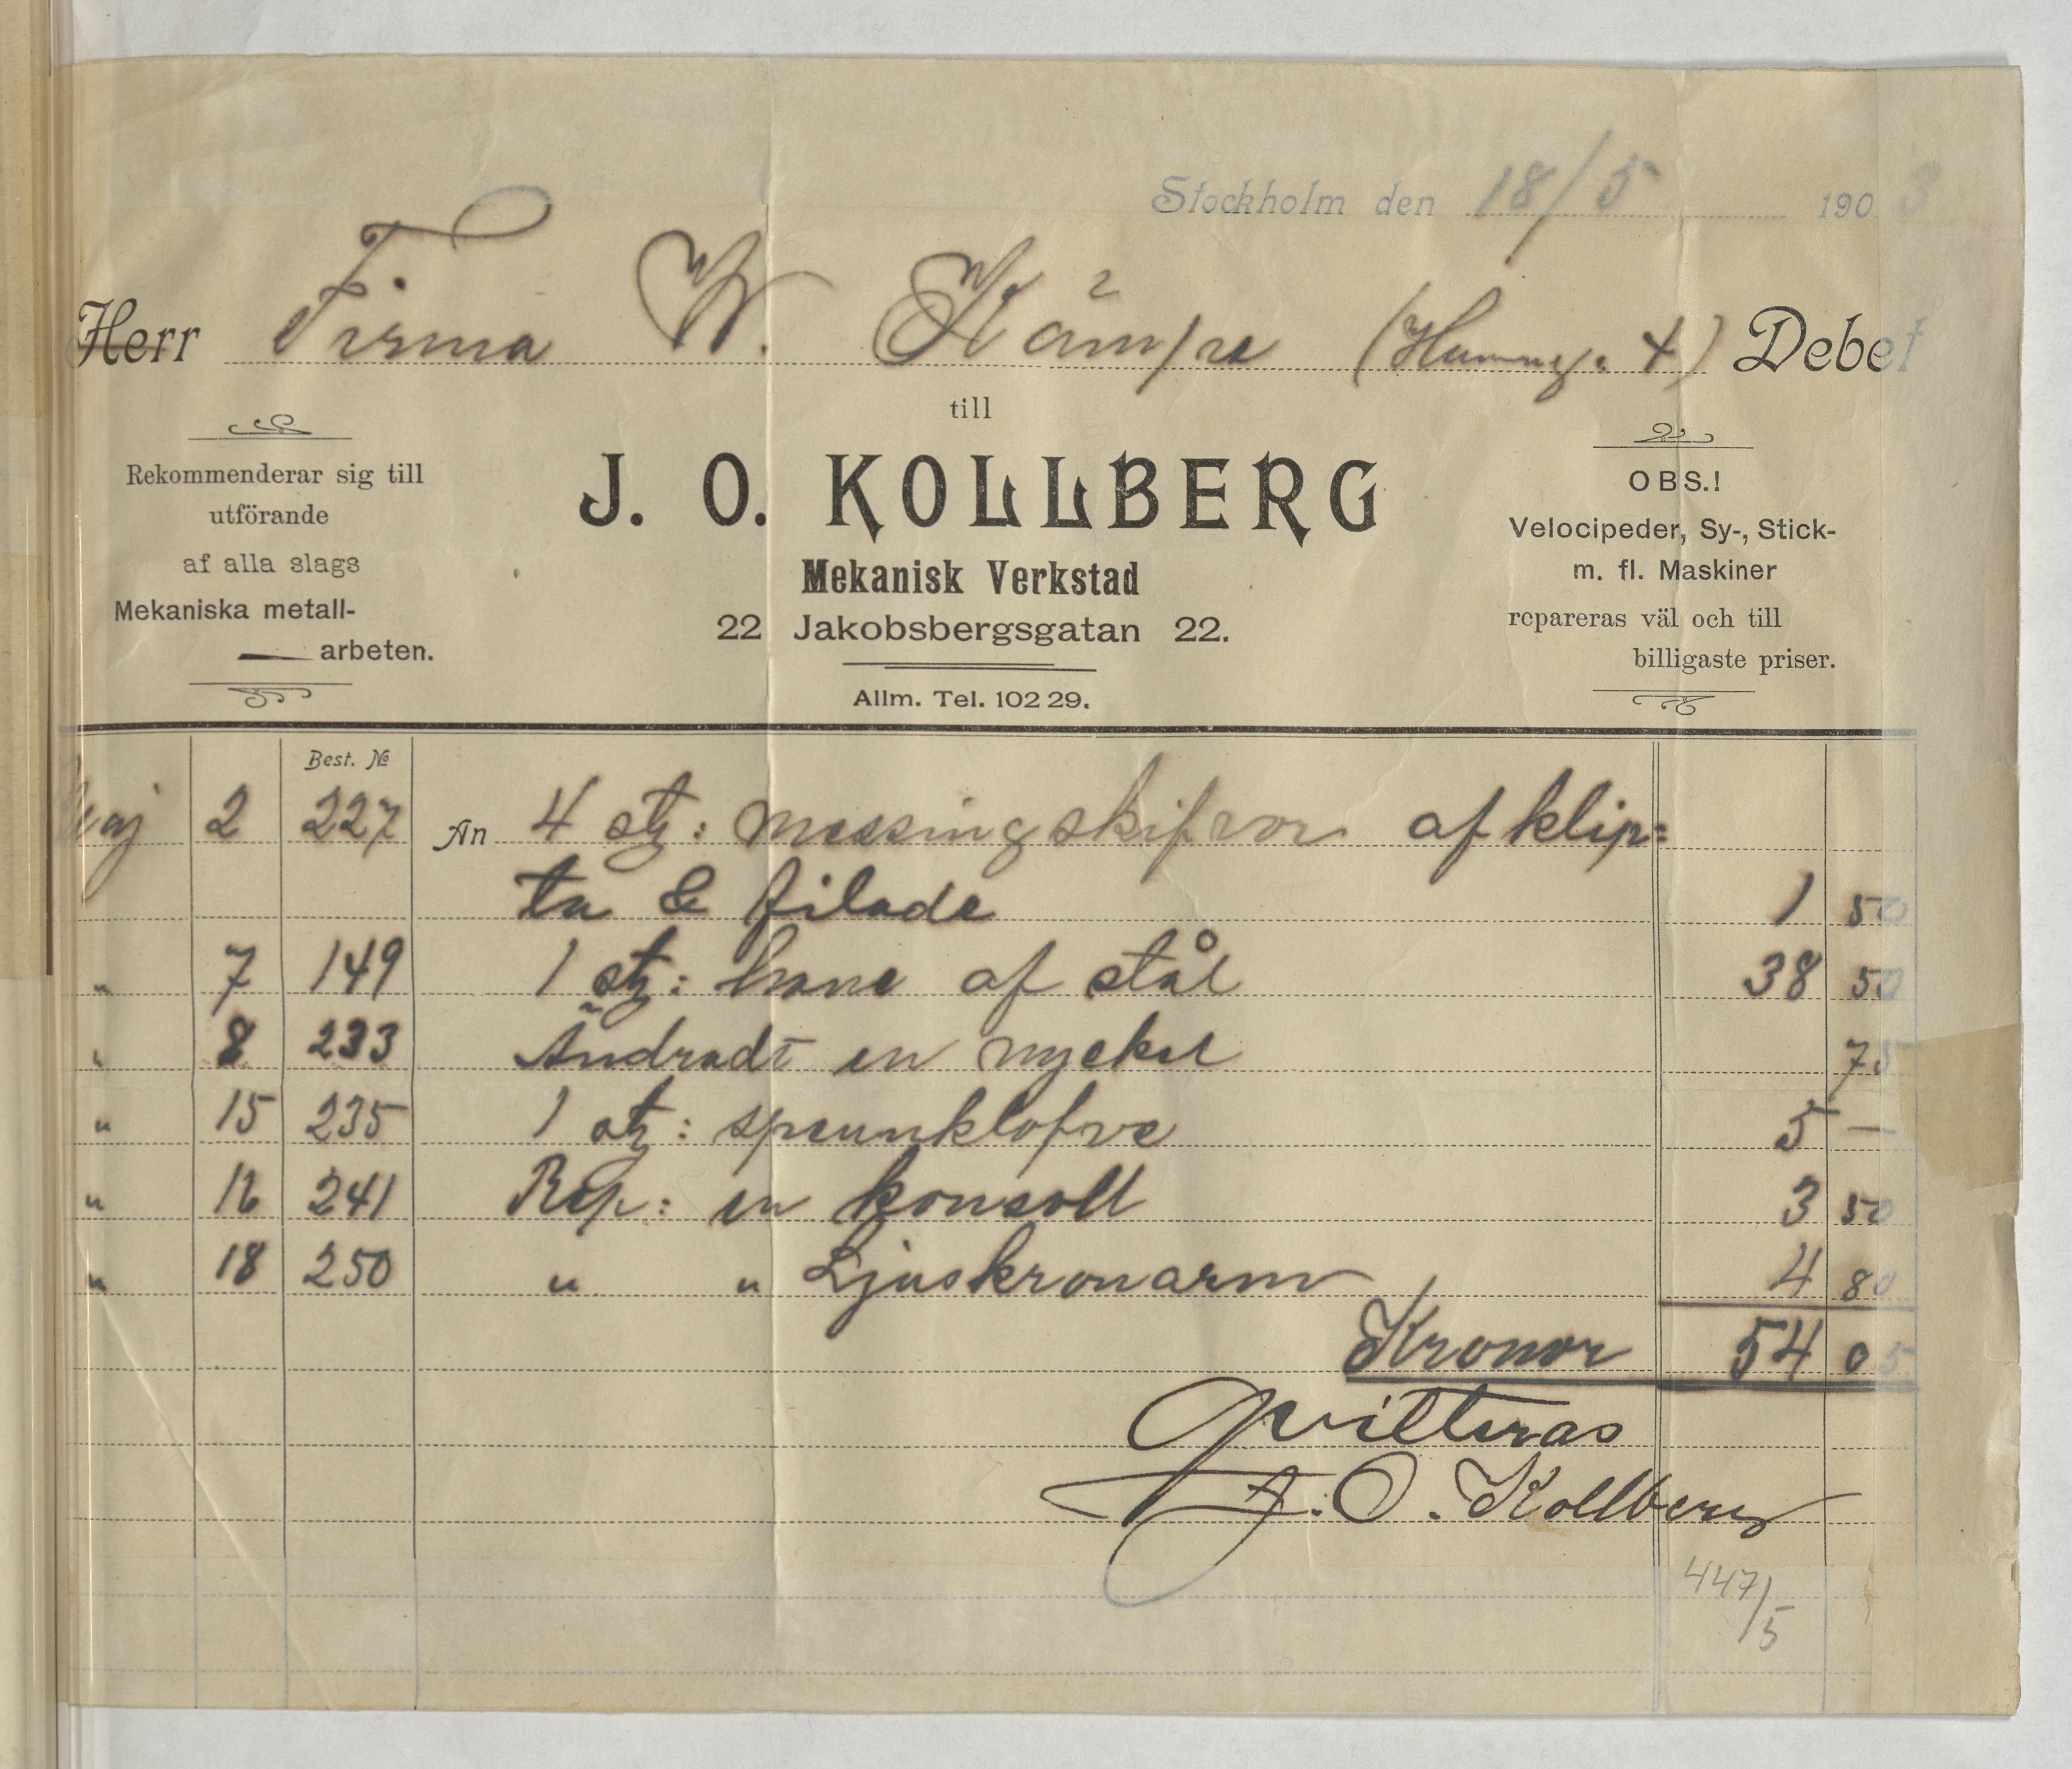 Stockholm den 18/5 1903
Herr Firma W. Kämpe (Hamng: 4) Debet
till
J. O. KOLLBERG
Mekanisk Verkstad
22 Jakobsbergsgatan 22.
Allm. Tel. 102 29.
Rekommenderar sig till
utförande
af alla slags
Mekaniska metall-
arbeten.
OBS.!
Velocipeder, Sy-, Stick-
m. fl. Maskiner
repareras väl och till
billigaste priser.
Best. No
Maj 2 227 An 4 st: messingskifvor afklip=
ta & filade 1 50
" 7 149 1 st: hane af stål 38 50
" 8 233 Ändradt en nyckel 75
" 15 235 1 st: spennklofve 5 —
" 16 241 Rep: en konsoll 3 50
" 18 250 " " Ljuskronarm 4 80
Kronor 54 05
Qvitteras
J. O. Kollberg
447/5